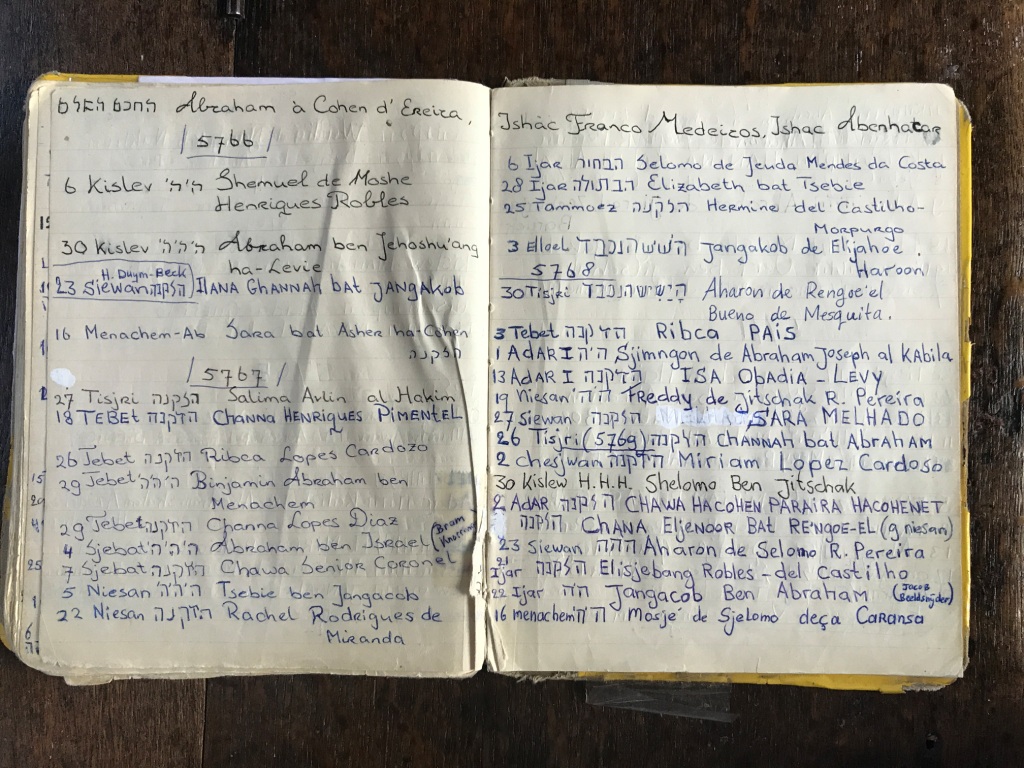 החכם השלם Abraham à Cohen d'Ereira,
5766
6 Kislev ה'ה' Shemuel de Moshe
Henriques Robles
30 Kislev ה'ה'ה' Abraham ben Jehoshu'ang
ha-Levie
H. Duym-Beck
23 Siewan הזקנה ILANA GHANNAH bat JANGAKOB
16 Menachem-Ab Sara bat Asher ha-Cohen
הזקנה
5767
27 Tisjri הזקנה Salima Avlin al Hakim
18 TEBET הזקנה CHANNA HENRIQUES PIMENTEL
26 Tebet הזקנה Ribca Lopes Cardozo
29 Tebet ה'ה'ה' Binjamin Abraham ben
Menachem
29 Tebet הזקנה Channa Lopes Diaz
4 Sjebat ה'ה'ה' Abraham ben Israel (Bram
Knorringa)
7 Sjebat הזקנה Chawa Senior Coronel
5 Niesan ה'ה'ה' Tsebie ben Jangacob
22 Niesan הזקנה Rachel Rodrigues de
Miranda
Ishac Franco Medeiros, Ishac Abenhacar
6 Ijar הבחור Selomo de Jeuda Mendes da Costa
28 Ijar הבתולה Elizabeth bat Tsebie
25 Tammoez הזקנה Hermine del Castilho-
Morpurgo
3 Elloel הישיש הנכבד Jangakob de Elijahoe
Haroon
5768
30 Tisjri הישיש הנכבד Aharon de Rengoe'el
Bueno de Mesquita.
3 Tebet הזקנה Ribca PAIS
1 AdAR I ה'ה' Sjimngon de Abraham Joseph al KAbila
13 AdAR I הזקנה ISA ObAdiA - LEVY
19 Niesan ה'ה' Freddy de Jitschak R. Pereira
27 Siewan הזקנה SARA MELHADO
26 Tisjri (5769) הזקנה CHANNAH bat ABRAHAM
2 chesjwan הזקנה Miriam Lopez Cardoso
30 Kislew H.H.H. Shelomo Ben Jitschak
2 AdAR הזקנה CHAWA HACOHEN PARAIRA HACOHENET
הזקנה CHANA ELjENOOR BAT RE'NGOE-EL (9 niesan)
23 Siewan ההה Aharon de Selomo R. Pereira
21 Ijar הזקנה Elisjebang Robles - del Castilho
22 Ijar הה Jangacob Ben Abraham (Jacob
Beeldsnijder)
16 menachem ה'ה' Mosjé de Sjelomo deça Caransa